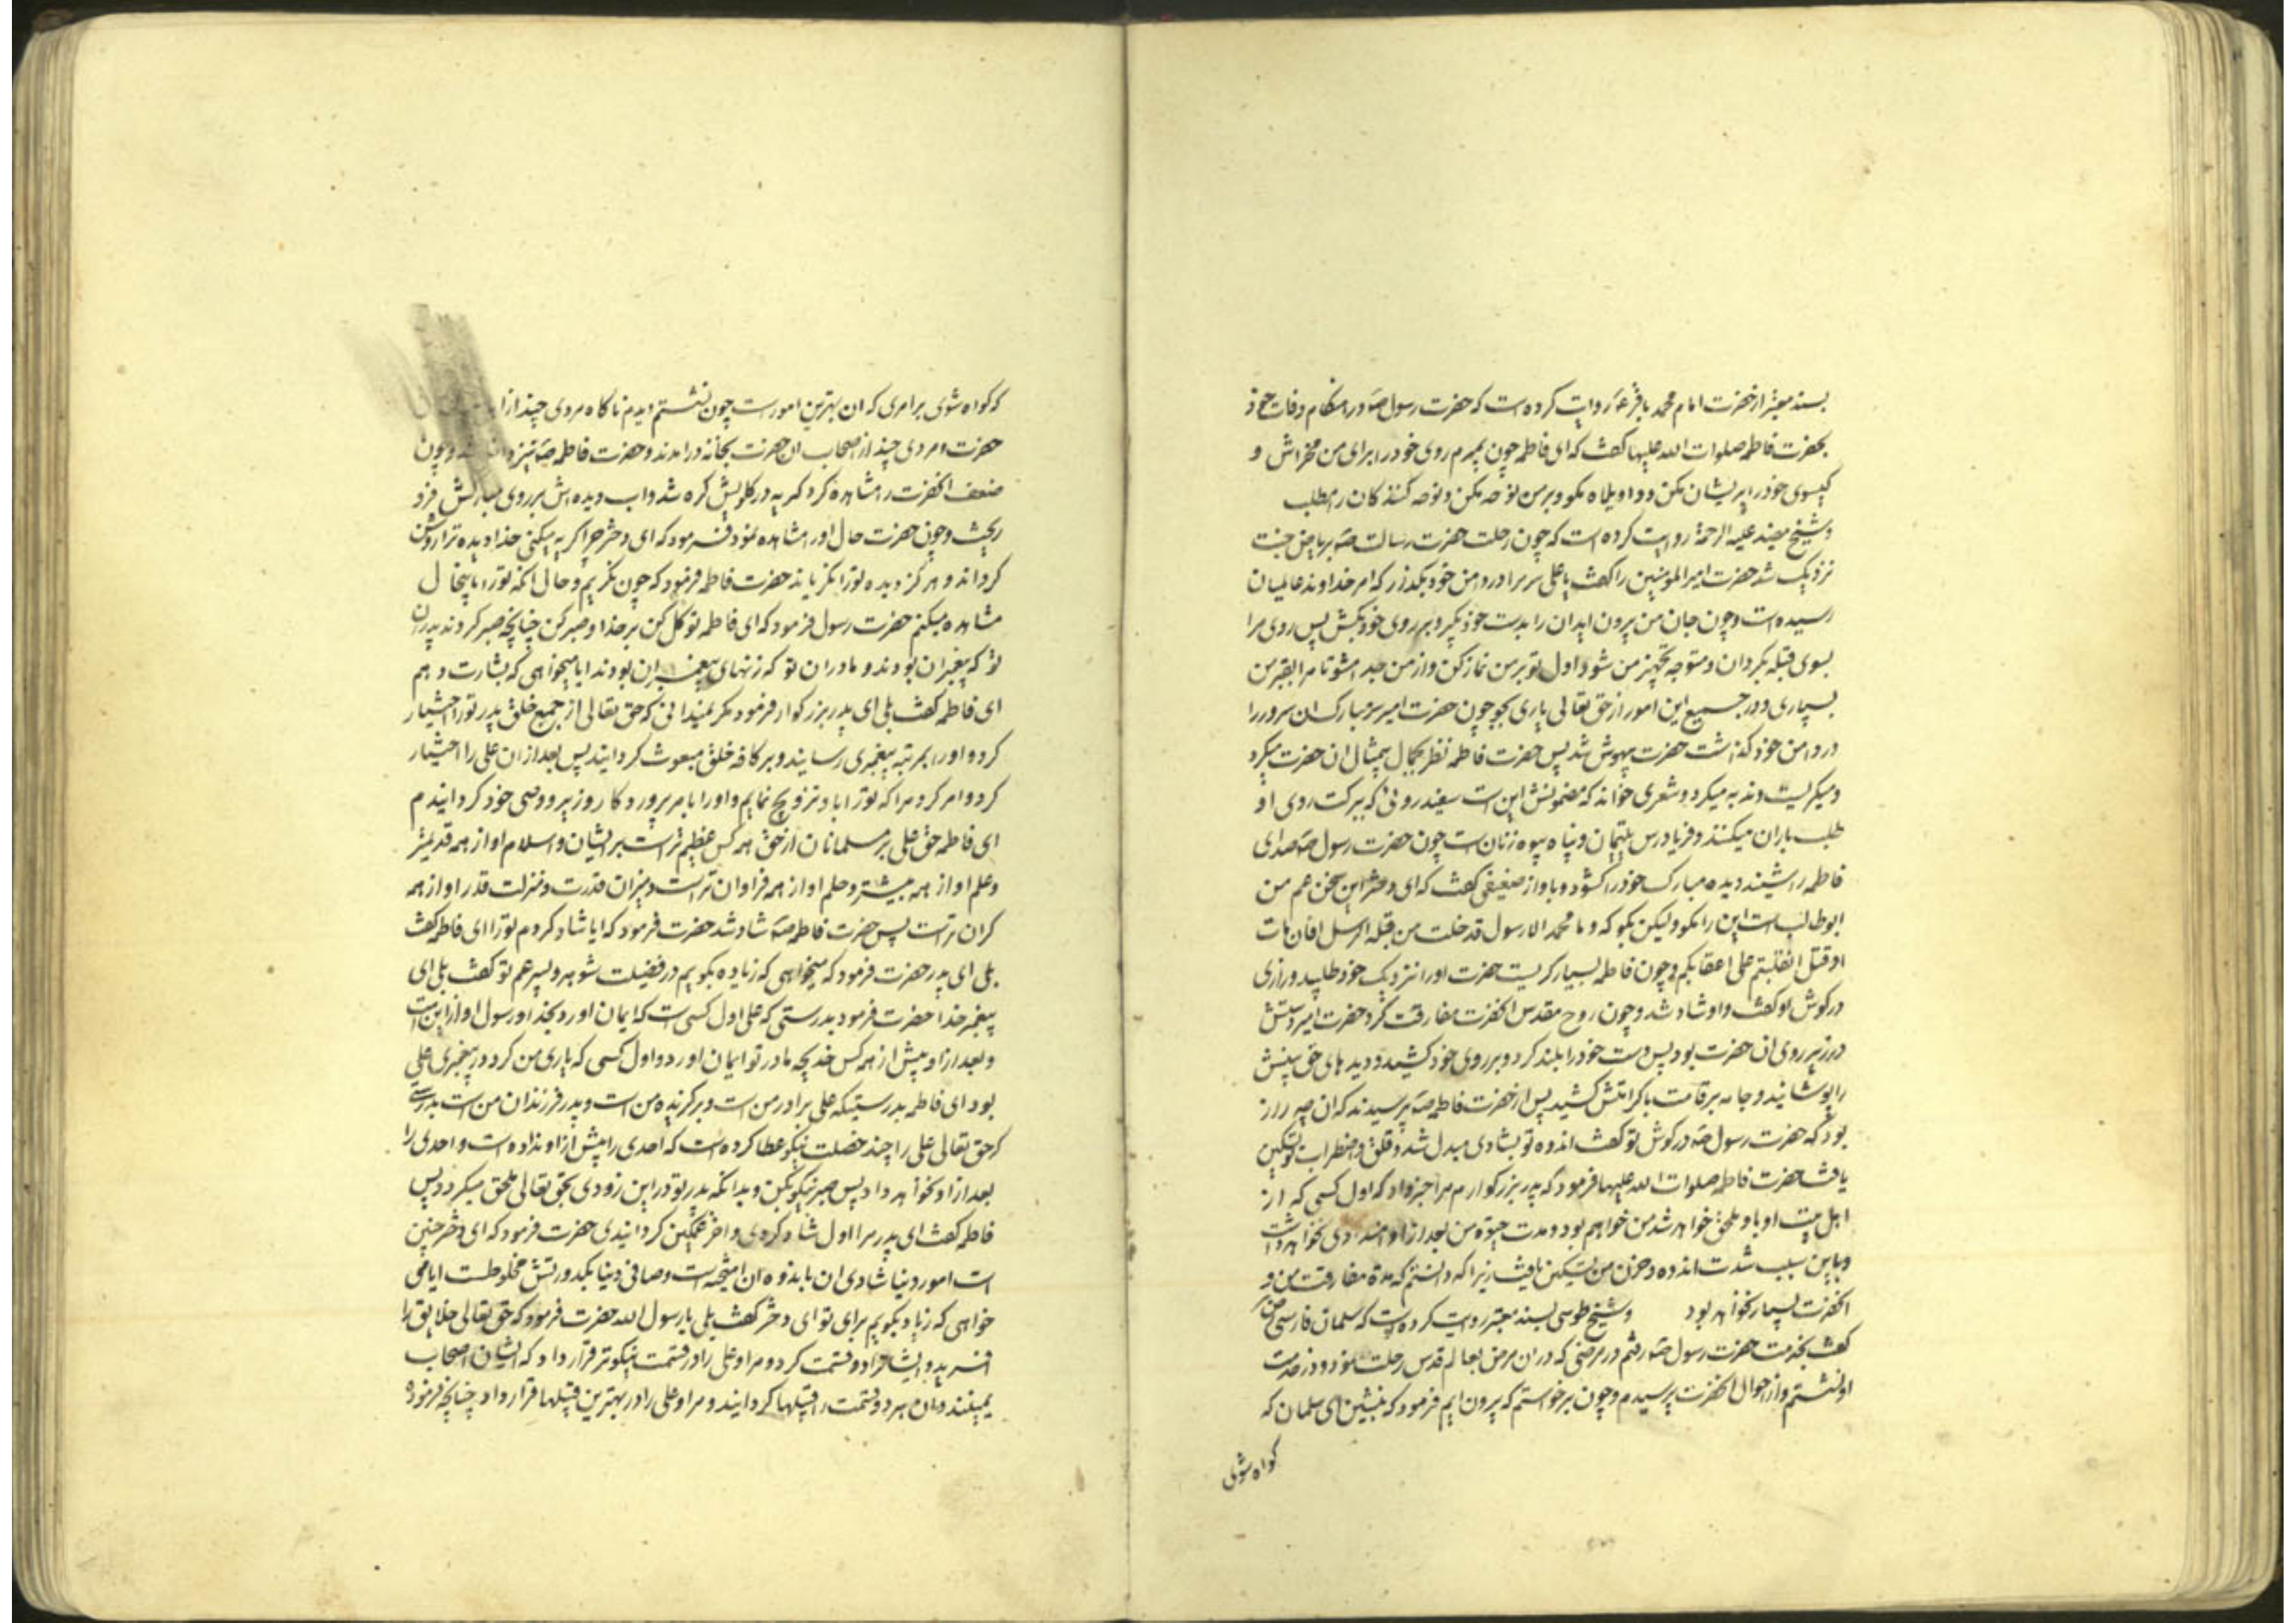 بسند معتبر از حضرت امام محمد باقر ع روایت کرده است که حضرت رسول ص در هنکام وفات خود
بحضرت فاطمه صلوات الله علیها کفت که ای فاطمه چون بمیرم روی خود را برای من مخراش و
کیسوی خود را پریشان مکن و واویلاه مکو و بر من نوحه مکن و نوحه کنندکان را مطلب
و شیخ مفید علیه الرحمة روایت کرده است که چون رحلت حضرت رسالت ص بریاض جنت
نزدیک شد حضرت امیر المومنین را کفت یا علی سر مرا در دامن خود بکذار که امر خداوند عالمیان
رسیده است و چون جان من بیرون اید ان را بدست خود بکیر و بر روی خود بکش پس روی مرا
بسوی قبله بکردان و متوجه تجهیز من شو و اول تو بر من نماز کن و از من جدا مشو تا مرا بقبر من
بسپاری و در جمیع این امور از حق تعالی یاری بجو چون حضرت امیر سر مبارک ان سرور را
در دامن خود کذاشت حضرت بیهوش شد پس حضرت فاطمه نظر بجمال بیمثال ان حضرت میکرد
و میکریست و ندبه میکرد و شعری خواند که مضمونش این است سفید روئی که ببرکت روی او
طلب باران میکنند و فریادرس یتیمان و پناه بیوه زنان است چون حضرت رسول ص صدای
فاطمه را شنید دیده مبارک خود را کشود و باواز ضعیفی کفت که ای دختر این سخن عم من
ابوطالب است این را مکو ولیکن بکو که و ما محمد الا رسول قد خلت من قبله الرسل افان مات
او قتل انقلبتم علی اعقابکم و چون فاطمه بسیار کریست حضرت او را نزدیک خود طلبید و رازی
در کوش او کفت و او شاد شد و چون روح مقدس انحضرت مفارقت کرد حضرت امیر دستش
در زیر روی ان حضرت بود پس دست خود را بلند کرد و بر روی خود کشید و دیدهای حق بینش
را پوشانید و جامه بر قامت باکرامتش کشید پس از حضرت فاطمه ص پرسیدند که ان چه راز
بود که حضرت رسول ص در کوش تو کفت اندوه تو بشادی مبدل شد و قلق و اضطراب تو تسکین
یافت حضرت فاطمه صلوات الله علیها فرمود که پدر بزرکوارم مرا خبر داد که اول کسی که از
اهل بیت او باو ملحق خواهد شد من خواهم بود و مدت حیوة من بعد از او امتدادی نخواهد داشت
و باین سبب شدت اندوه و حزن من تسکین یافت زیرا که دانستم که مدة مفارقت من و
انحضرت بسیار نخواهد بود و شیخ طوسی بسند معتبر روایت کرده است که سلمان فارسی رض
کفت بخدمت حضرت رسول ص رفتم در مرضی که در ان مرض بعالم قدس رحلت نمود و در خدمت
او نشستم و از احوال انحضرت پرسیدم و چون برخواستم که بیرون ایم فرمود که بنشین ای سلمان که
کواه شوی
که کواه شوی بر امری که ان بهترین امورست چون نشستم دیدم ناکاه مردی چند از
حضرت و مردی چند از اصحاب ان حضرت بخانه درامدند و حضرت فاطمه ص نیز و چون
ضعف انحضرت را مشاهده کرد کریه در کلویش کره شد و اب دیده اش بر روی مبارکش فرو
ریخت و چون حضرت حال او را مشاهده نمود فرمود که ای دختر چرا کریه میکنی خدا دیده ترا روشن
کرداند و هرکز دیده تو را نکریاند حضرت فاطمه فرمود که چون نکریم و حال انکه تو را باینحال
مشاهده میکنم حضرت رسول فرمود که ای فاطمه توکل کن بر خدا و صبر کن چنانچه صبر کردند پدران
تو که پیغمبران بودند و مادران تو که زنهای پیغمبران بودند ایا میخواهی که بشارت دهم
ای فاطمه کفت بلی ای پدر بزرکوار فرمود مکر نمیدانی که حق تعالی از جمیع خلق پدر تو را اختیار
کرد و او را بمرتبه پیغمبری رسانید و بر کافه خلق مبعوث کردانید پس بعد از ان علی را اختیار
کرد و امر کرد مرا که تو را باو تزویج نمایم و او را بامر پروردکار وزیر و وصی خود کردانیدم
ای فاطمه حق علی بر مسلمانان از حق همه کس عظیم تر است بر ایشان و اسلام او از همه قدیمتر
و علم او از همه بیشتر و حلم او از همه فراوان تر است و میزان قدرت و منزلت قدر او از همه
کران تر است پس حضرت فاطمه ص شاد شد حضرت فرمود که ایا شاد کردم تو را ای فاطمه کفت
بلی ای پدر حضرت فرمود که میخواهی که زیاده بکویم در فضیلت شوهر و پسر عم تو کفت بلی ای
پیغمبر خدا حضرت فرمود بدرستی که علی اول کسی است که ایمان اورد بخدا و رسول او از این امت
و بعد از او پیش از همه کس خدیجه مادر تو ایمان اورد و اول کسی که یاری من کرد در پیغمبری علی
بود ای فاطمه بدرستیکه علی برادر من است و برکزیده من است و پدر فرزندان من است بدرستی
که حق تعالی علی را چند خصلت نیکو عطا کرده است که احدی را پیش از او نداده است و احدی را
بعد از او نخواهد داد پس صبر نیکو بکن و بدانکه پدر تو در این زودی بحق تعالی ملحق میکردد پس
فاطمه کفت ای پدر مرا اول شاد کردی و اخر غمکین کردانیدی حضرت فرمود که ای دختر چنین
است امور دنیا شادی ان باندوه ان امیخته است و صافی دنیا بکدورتش مخلوطست ایا می
خواهی که زیاد بکویم برای تو ای دختر کفت بلی یا رسول الله حضرت فرمود که حق تعالی خلایق را
افرید و ایشانرا دو قسمت کرد و مرا و علی را در قسمت نیکوتر قرار داد که ایشان اصحاب
یمینند و ان هر دو قسمت را قبیلها کردانید و مرا و علی را در بهترین قبیلها قرار داد چنانچه فرموده